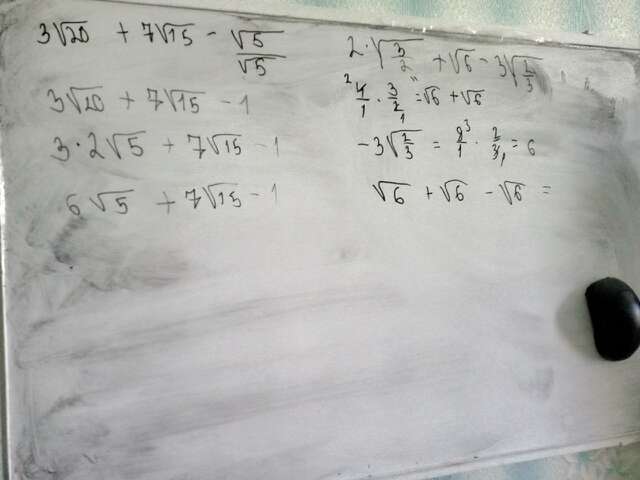 3√20 + 7√15 - √5/√5
3√20 + 7√15 - 1
3·2√5 + 7√15 - 1
6√5 + 7√15 - 1
2·√3/2 + √6 - 3√2/3
²4/1 · 3/2₁ = √6 + √6
-3√2/3 = 9³/1 · 2/3₁ = 6
√6 + √6 - √6 =